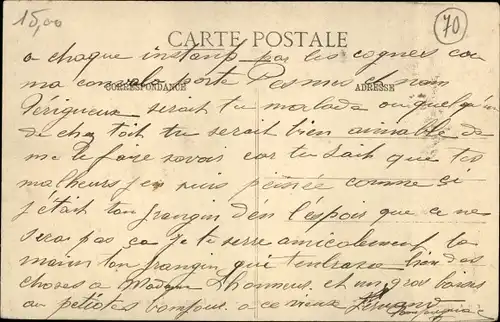 15,00
70
CARTE POSTALE
a chaque instant par les cognes cou
ma porte Pesmes et non
CORRESPONDANCE ADRESSE
Perigueux serait tu malade ou quelqu'un
de chez toit tu serait bien aimable de
me le faire savoir car tu sait que tes
malheurs j'en suis peinée comme si
j'était ton frangin den l'espoir que ce ne
sera pas ça Je te serre amicalement la
main ton frangin qui t'embrasse bien des
choses a Madame Lhonneux et un gros baiser
au petiotes bonjour a ce vieux Fernand